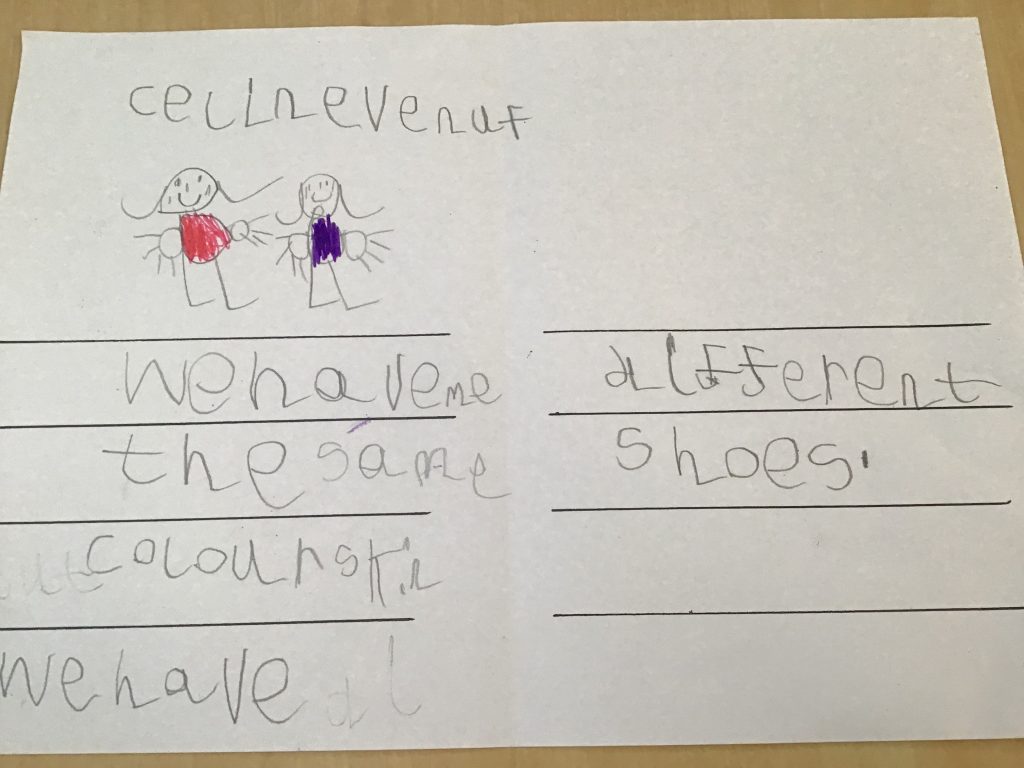 wehaveme
the same
colour skin
we have
different
shoes.